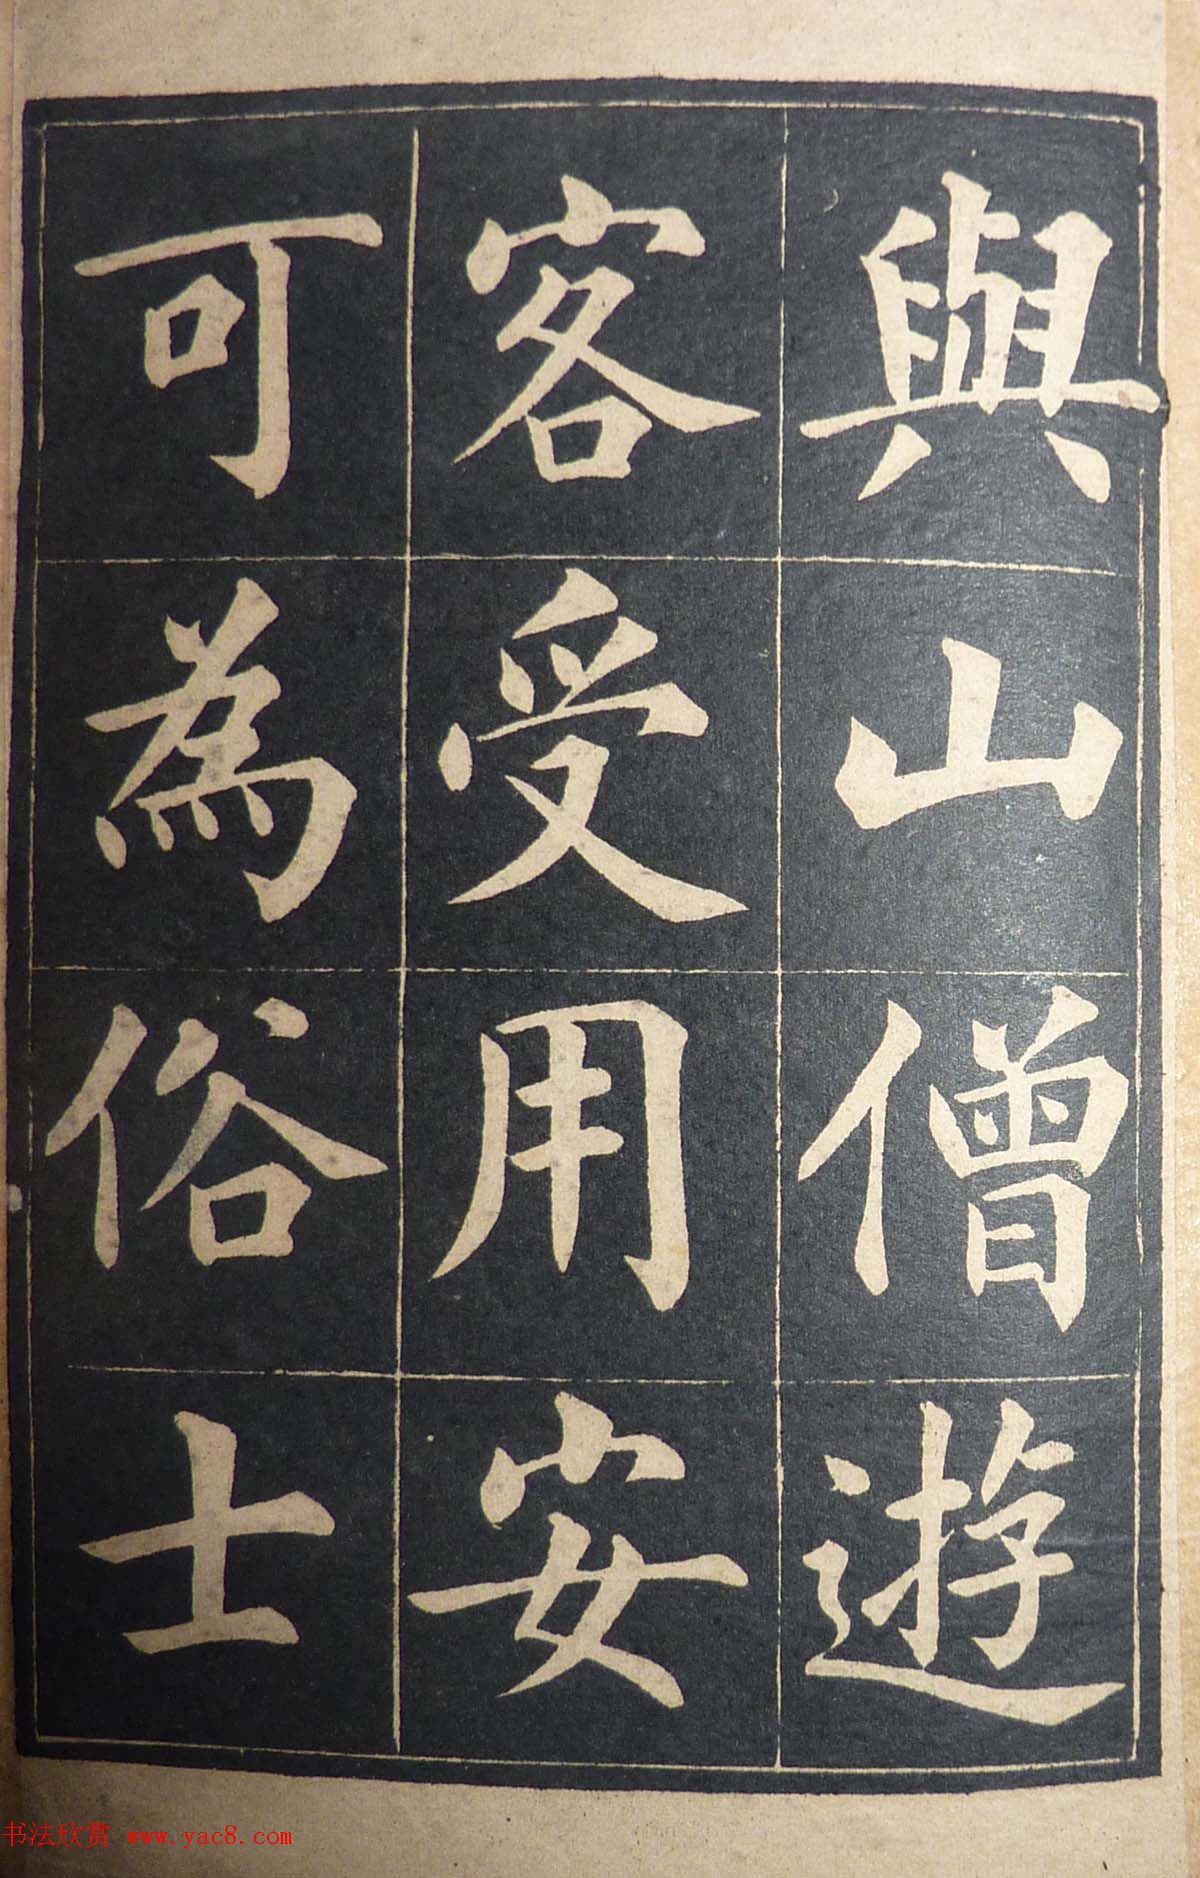 與山僧遊
客受用安
可為俗士
书法欣赏 www.yac8.com